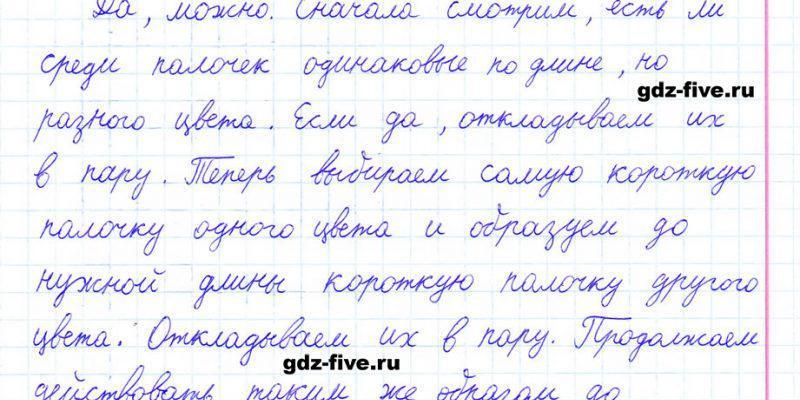 Да, можно. Сначала смотрим, есть ли
среди палочек одинаковые по длине, но
gdz-five.ru
разного цвета. Если да, откладываем их
в пару. Теперь выбираем самую короткую
палочку одного цвета и образуем до
нужной длины короткую палочку другого
цвета. Откладываем их в пару. Продолжаем
gdz-five.ru
действовать таким же образом до